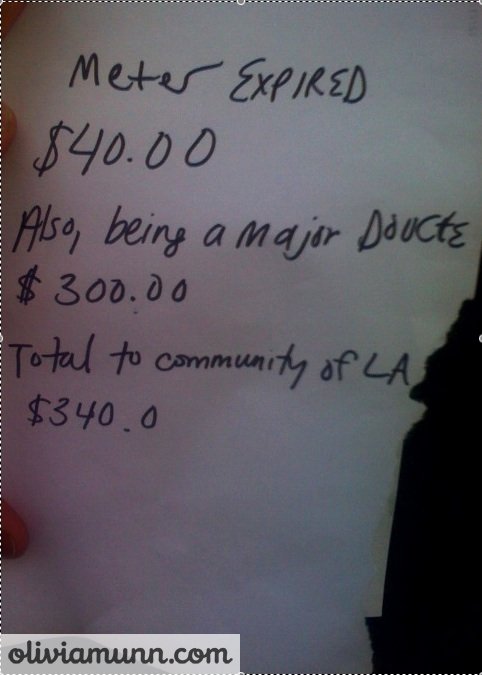 Meter EXPIRED
$40.00
Also, being a major DOUCTE
$ 300.00
Total to community of LA
$340.0
oliviamunn.com